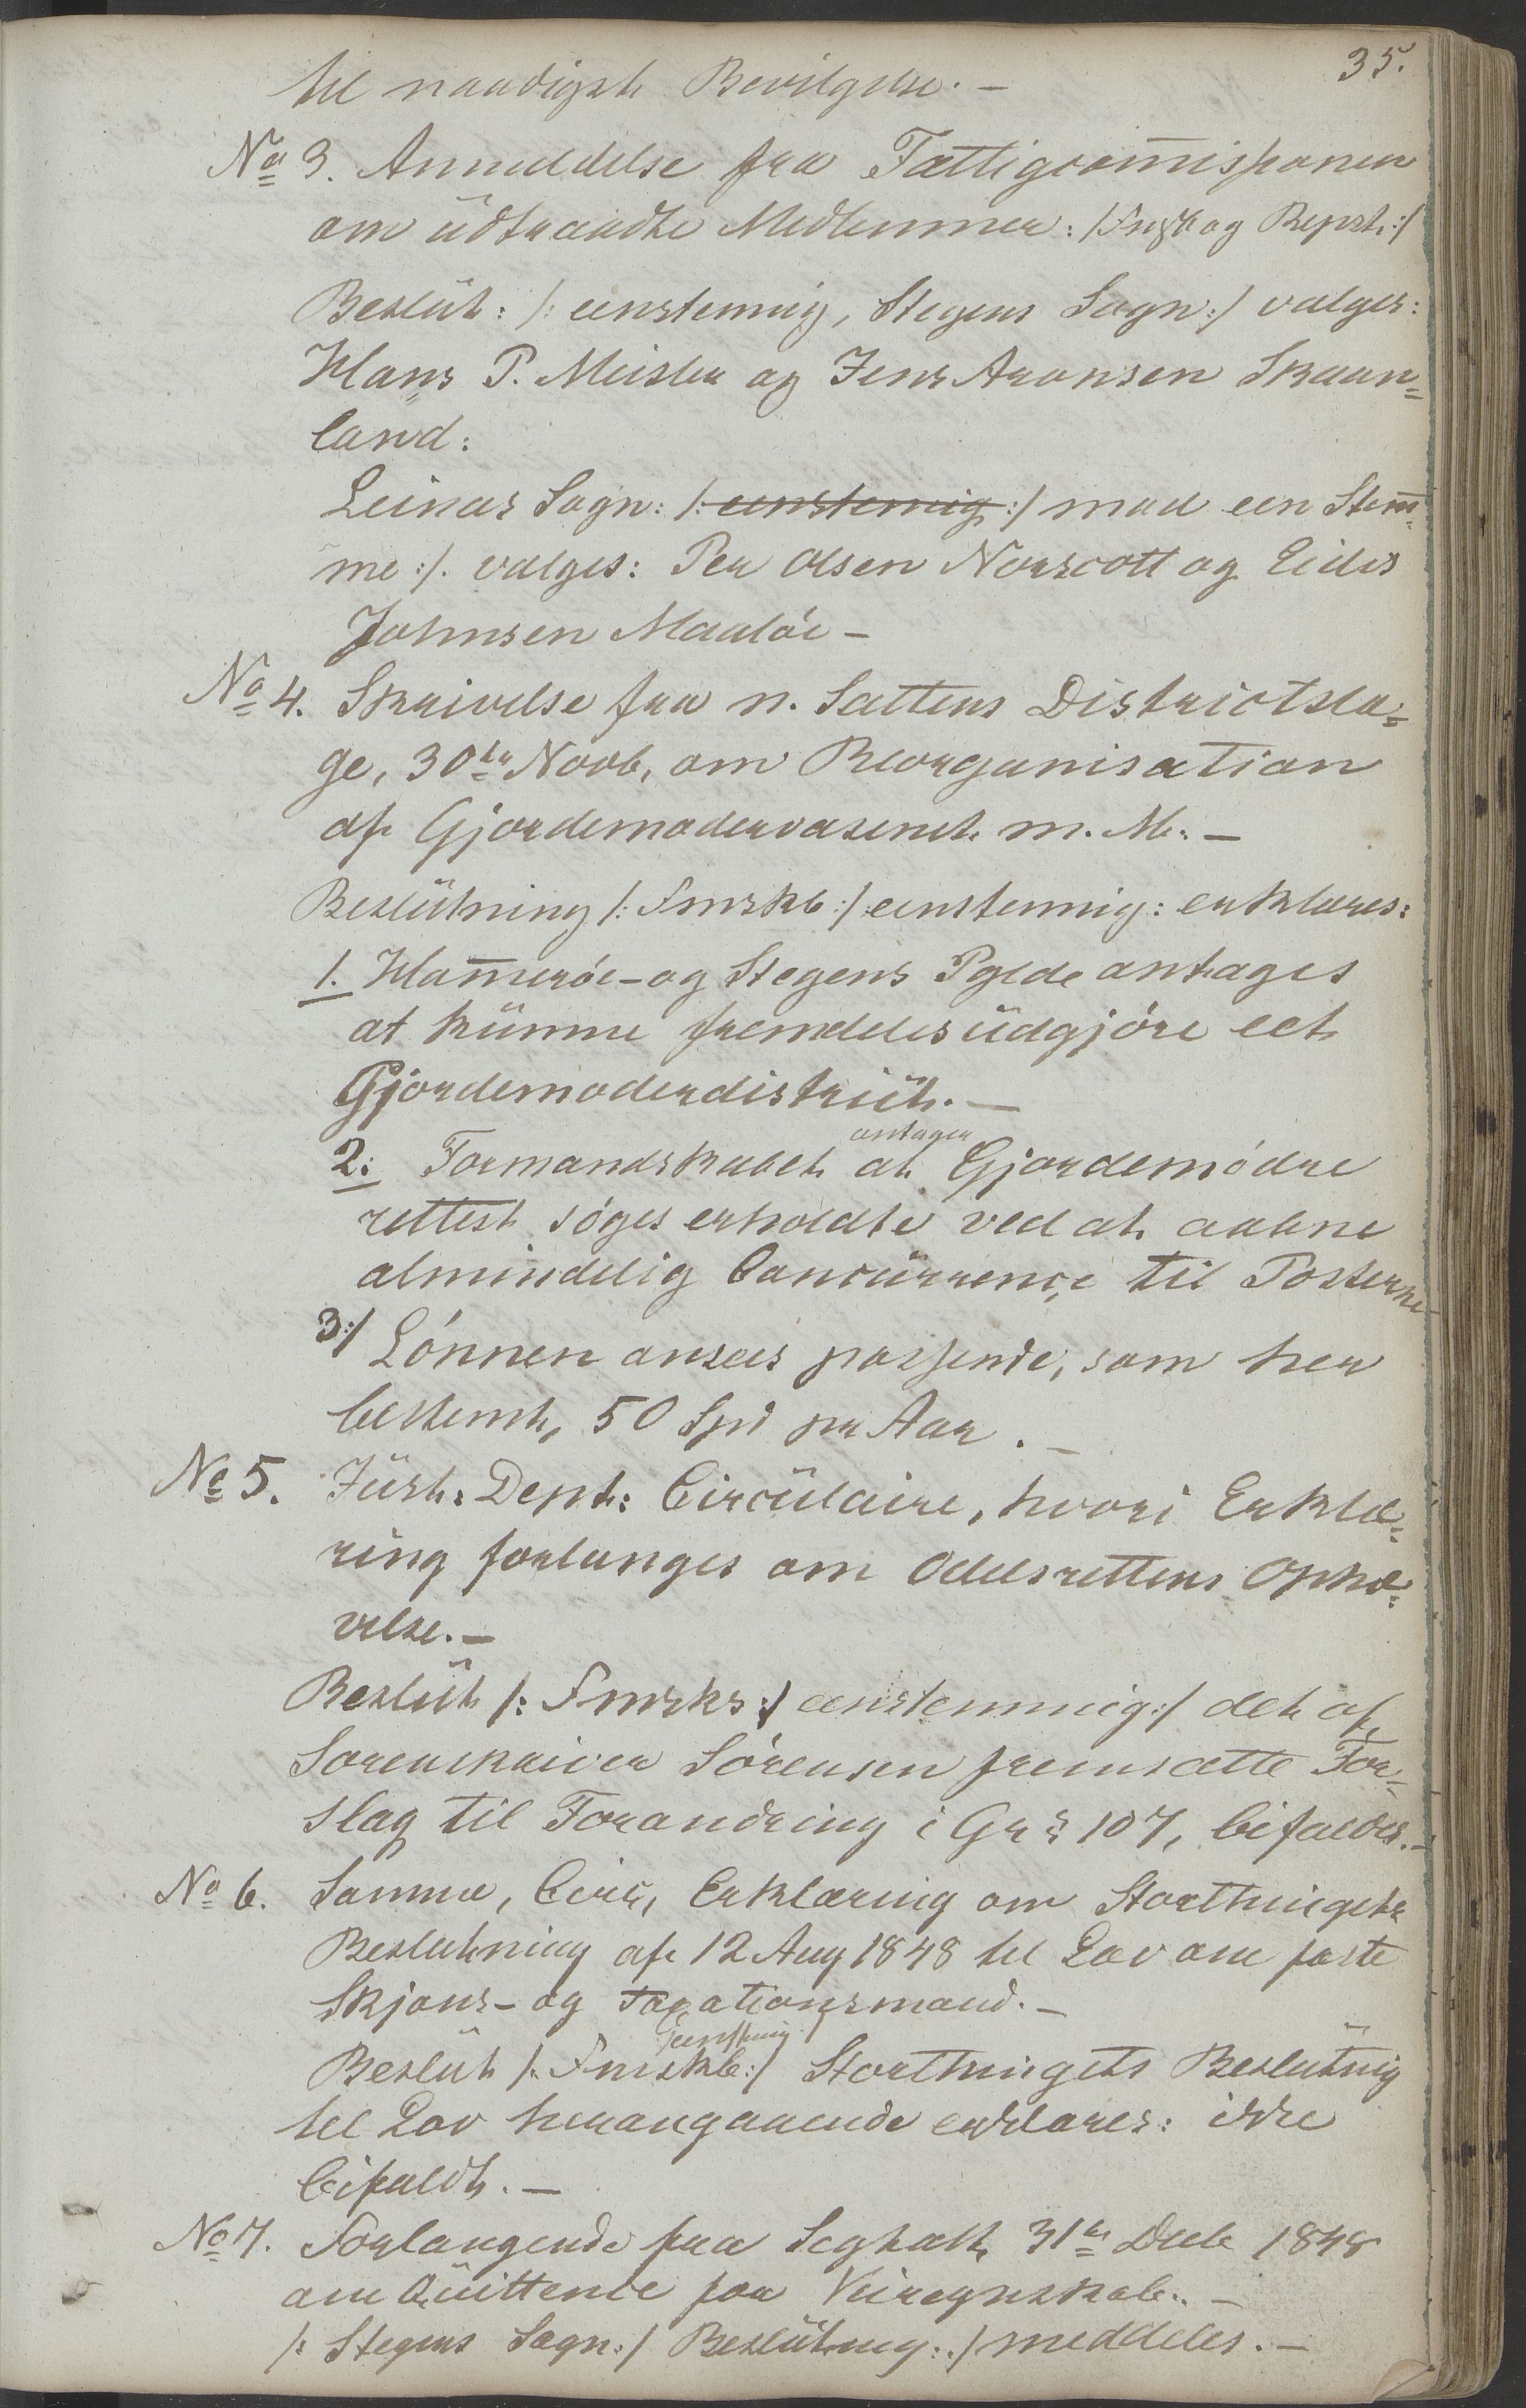 35.
til naadigste Bevilgelse. –
No 3. Anmeldelse fra Fattigcom̄issionen
om udtraadte Medlemmer: /: og Reprt:/
Beslut: /: eenstemig, Stegens Sogn:/ valges:
Hans P. Meisler og Jens Aronsen Skaan=
land:
Leinas Sogn: /: eenstemig :/ mod een Stem̄=
me :/. valges: Per Olsen Norscott og Eides
Johnsen Maaløe –
No 4. Skrivelse fra n. Saltens Districtslæ=
ge, 30te Novb, om Reorganisation
af Gjordemodervæsenet m. M. –
Beslutning /: Fmskb :/ eenstemmig: erklæres:
1. Ham̄erøe- og Stegens Pglde antages
at kunne fremdeles udgjøre eet
Gjordemoderdistrict. –
antager
2: Formandskabet at Gjordemødre
rettest søges erholdte ved at aabne
almindelig Concurrence til Posterne
3:/ Lønnen ansees passende, som her
bestemt, 50 Spd pr Aar. –
No 5. Just: Dept: Circulaire, hvori Erklæ=
ring forlanges om Odelsrettens Ophæ=
velse. –
Beslut /: Fmsks :/ eenstemmig :/ det af
Sorenskriver Sörensen fremsatte For=
slag til Forandring i Gr § 107, bifaldes. –
No 6. Samme, Circ, Erklæring om Storthingets
Beslutning af 12 Aug 1848 til Lov om faste
Skjøns- og Taxationsmænd. –
Beslut /: Fmskb :/ Storthingets Beslutnig
til Lov heranganaende erklæres: ikke
bifaldt. –
No 7. Forlangende fra 31te Decb 1848
om Quittence for Veiregnskab. –
/: Stegens Sogn :/ Beslutning :/ meddeles. –